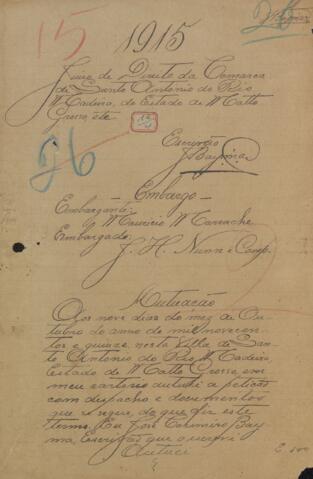 15
1915
Juizo de Direito da Comarca
de Santo Antonio do Rio
Madeira, do Estado de Matto
Grosso, etc
26
Escrivão
J. Bayma
Embargo
Embargante:
Mauricio Marrache
Embargado:
J. H. Nunn e Comp.
Autuação
Aos nove dias do mez de Ou-
tubro do anno de mil novecen-
tos e quinze, nesta Villa de San-
to Antonio do Rio Madeira,
Estado de Matto Grosso, em
meu cartorio autuei a petição
com despacho e documentos
que se segue do que fiz este
termo. Eu José Casimiro Bay-
ma, Escrivão que o escrevi
Autuei